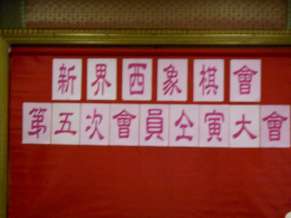 新界西象棋會
第五次會員仝寅大會